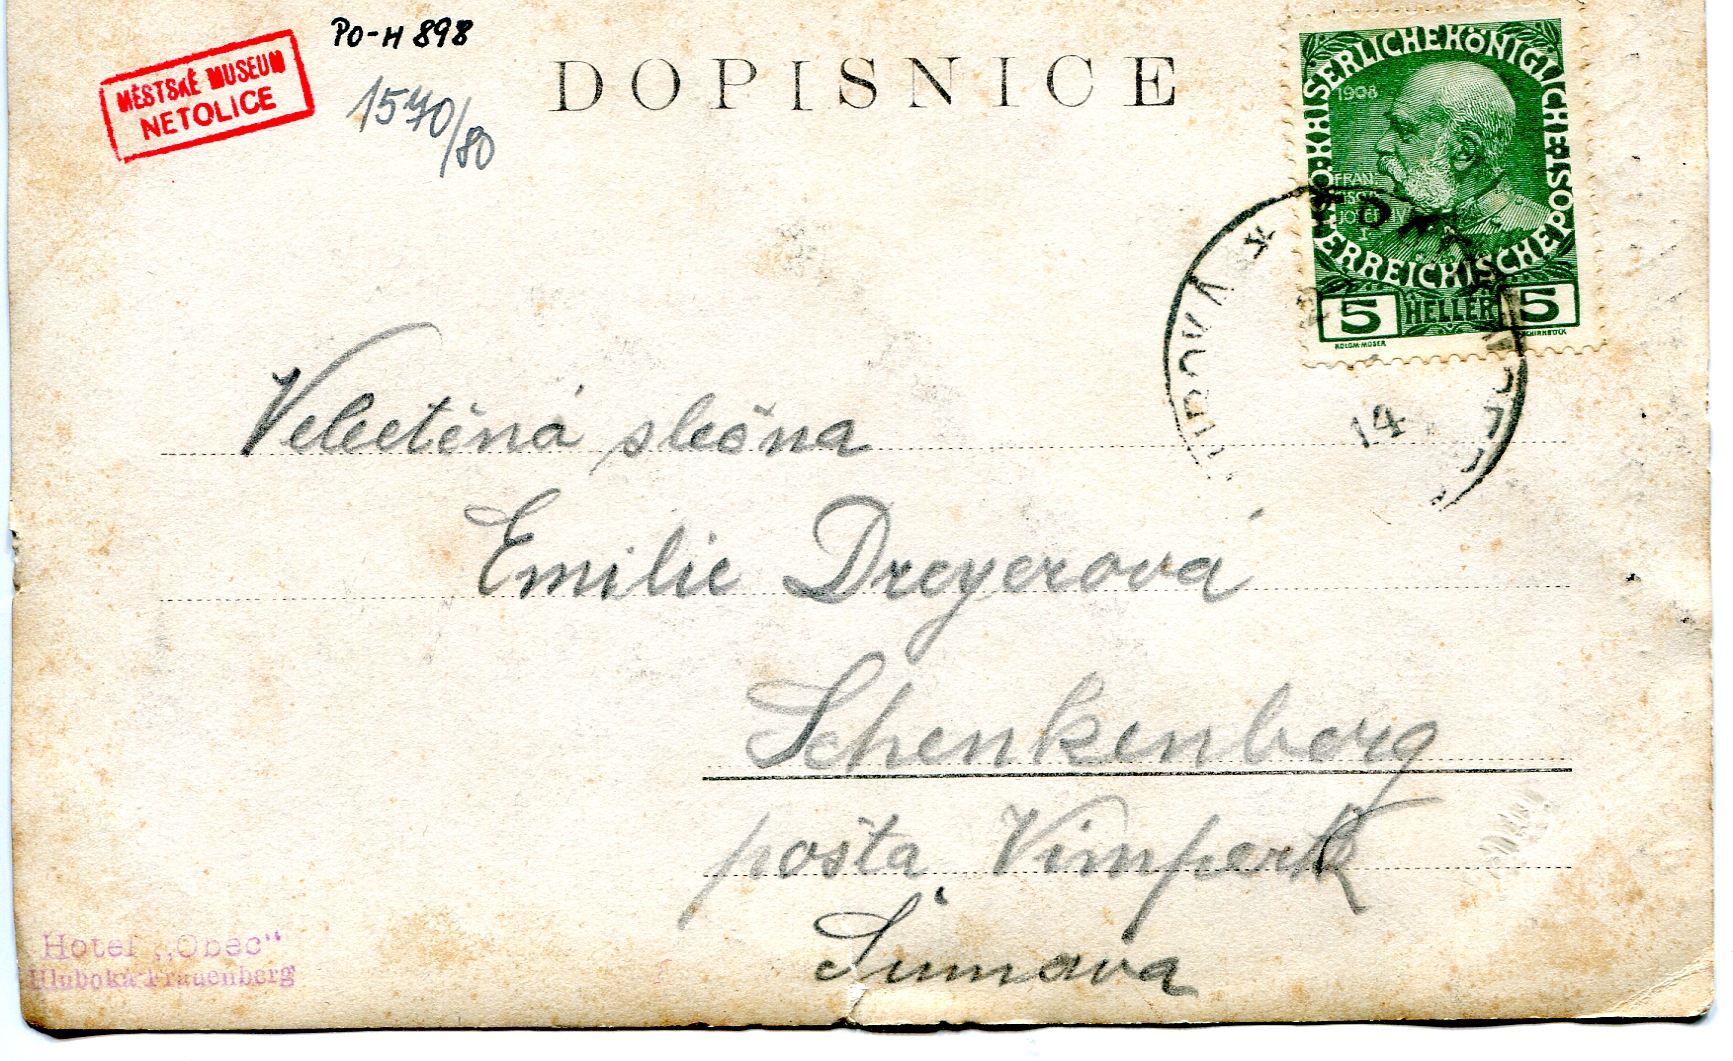 PO-H 898
MĚSTSKÉ MUSEUM
NETOLICE
1570/80
DOPISNICE
KAISERLICHE KÖNIGLICHE
ÖSTERREICHISCHE POST
1908
FRANZ
JOSEF
I
5 HELLER 5
KOLOM·MOSER
14
Velectěná slečna
Emilie Dreyerová
Schenkenberg
pošta Vimperk
Šumava
Hotel „Obec“
Hluboká Frauenberg